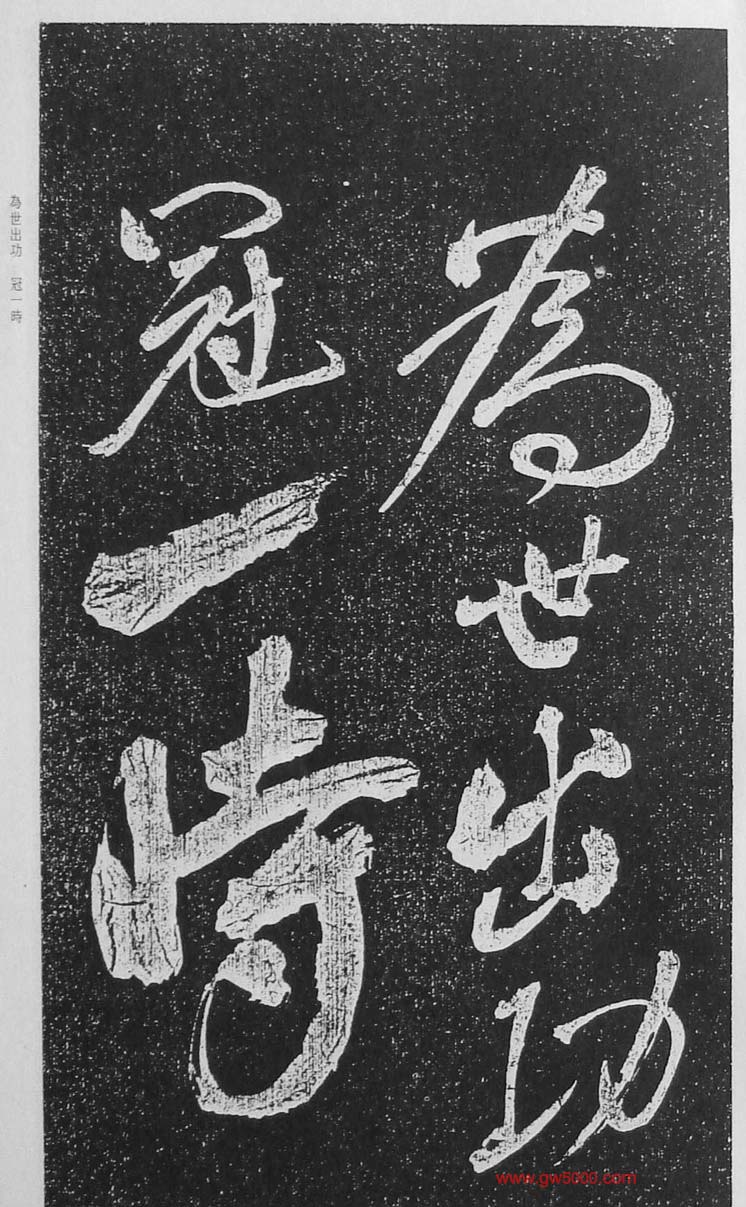 為世出功
冠一時
為世出功 冠一時
www.gw5000.com